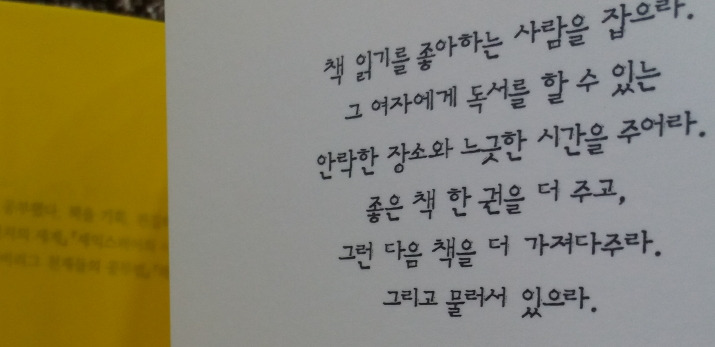 책 읽기를 좋아하는 사람을 잡으라.
그 여자에게 독서를 할 수 있는
안락한 장소와 느긋한 시간을 주어라.
좋은 책 한 권을 더 주고,
그런 다음 책을 더 가져다주라.
그리고 물러서 있으라.